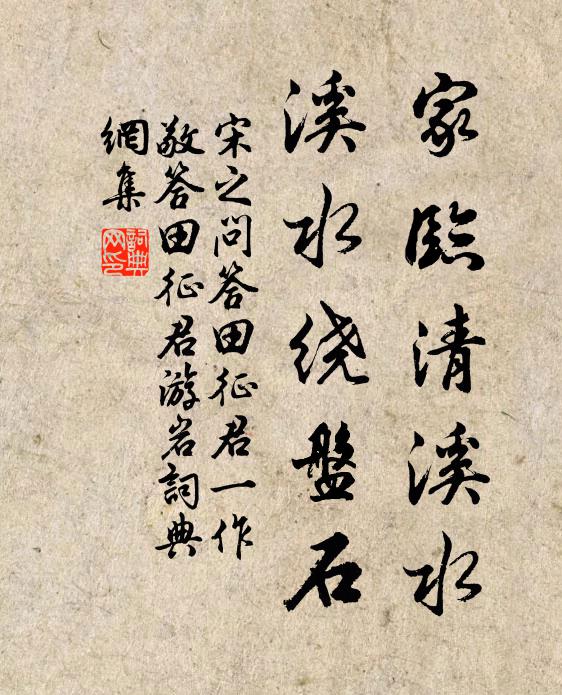 家臨清溪水
溪水绕盤石
宋之問答田征君一作
敬答田征君游岩詞典
網集
詞典
网印